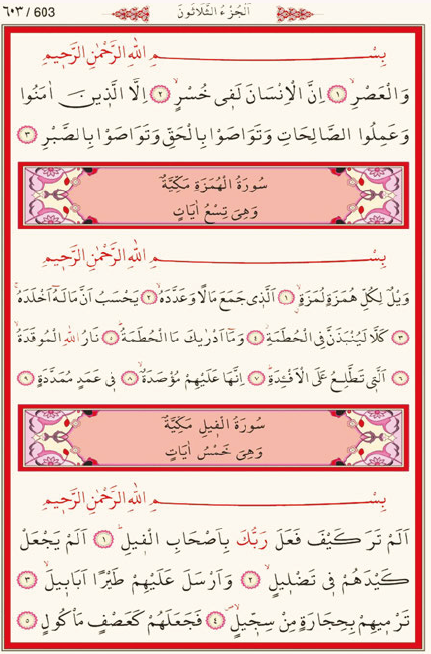 ٦٠٣ / 603 اَلْجُزْءُ الثَّلَاثُونَ
بِسْمِ اللّٰهِ الرَّحْمٰنِ الرَّح۪يمِ
وَالْعَصْرِۙ ١ اِنَّ الْاِنْسَانَ لَف۪ي خُسْرٍۙ ٢ اِلَّا الَّذ۪ينَ اٰمَنُوا
وَعَمِلُوا الصَّالِحَاتِ وَتَوَاصَوْا بِالْحَقِّ وَتَوَاصَوْا بِالصَّبْرِ ٣
سُورَةُ الْهُمَزَةِ مَكِّيَّةٌ
وَهِيَ تِسْعُ اٰيَاتٍ
بِسْمِ اللّٰهِ الرَّحْمٰنِ الرَّح۪يمِ
وَيْلٌ لِكُلِّ هُمَزَةٍ لُمَزَةٍۙ ١ اَلَّذ۪ي جَمَعَ مَالًا وَعَدَّدَهُۙ ٢ يَحْسَبُ اَنَّ مَالَهُٓ اَخْلَدَهُۚ
٣ كَلَّا لَيُنْبَذَنَّ فِي الْحُطَمَةِۘ ٤ وَمَٓا اَدْرٰيكَ مَا الْحُطَمَةُۜ ٥ نَارُ اللّٰهِ الْمُوقَدَةُۙ
٦ اَلَّت۪ي تَطَّلِعُ عَلَى الْاَفْـِٔدَةِۜ ٧ اِنَّهَا عَلَيْهِمْ مُؤْصَدَةٌۙ ٨ ف۪ي عَمَدٍ مُمَدَّدَةٍ ٩
سُورَةُ الْف۪يلِ مَكِّيَّةٌ
وَهِيَ خَمْسُ اٰيَاتٍ
بِسْمِ اللّٰهِ الرَّحْمٰنِ الرَّح۪يمِ
اَلَمْ تَرَ كَيْفَ فَعَلَ رَبُّكَ بِاَصْحَابِ الْف۪يلِۜ ١ اَلَمْ يَجْعَلْ
كَيْدَهُمْ ف۪ي تَضْل۪يلٍۙ ٢ وَاَرْسَلَ عَلَيْهِمْ طَيْرًا اَبَاب۪يلَۙ ٣
تَرْم۪يهِمْ بِحِجَارَةٍ مِنْ سِجّ۪يلٍۖ ٤ فَجَعَلَهُمْ كَعَصْفٍ مَأْكُولٍ ٥